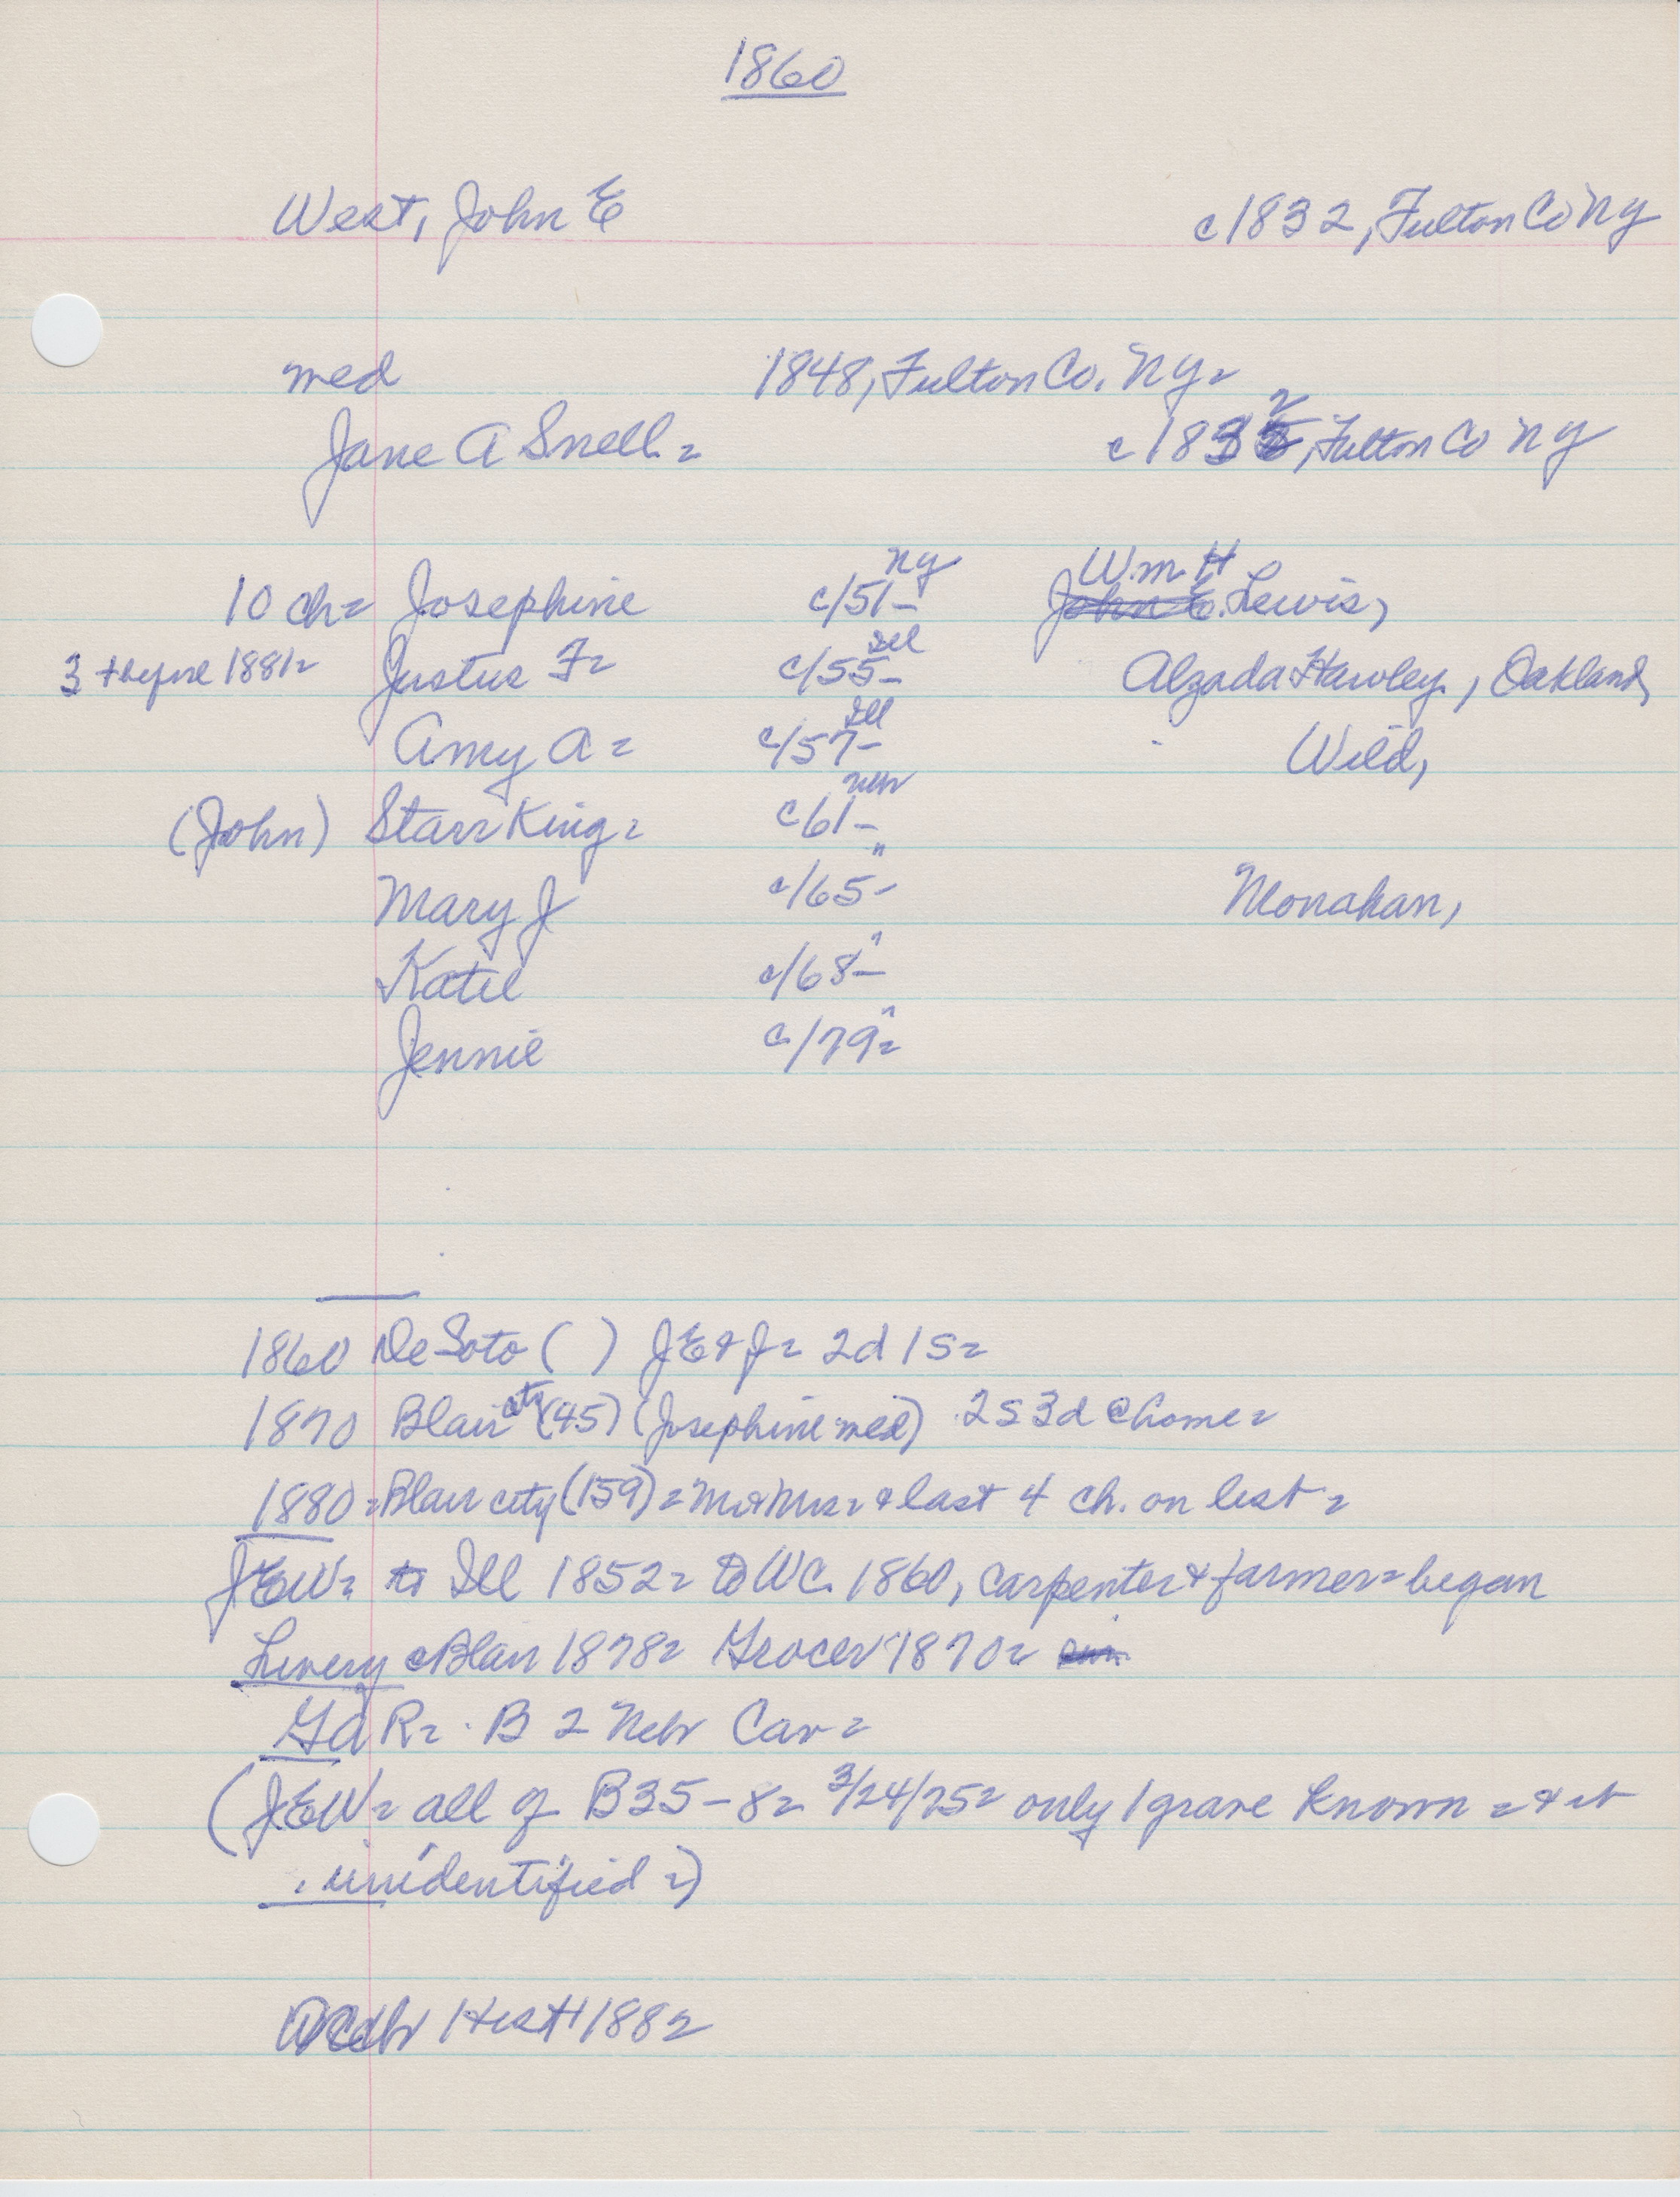 1860
West, John E c1832, Fulton Co NY
med 1848, Fulton Co. NY =
Jane A Snell = c1832, Fulton Co NY
NY Wm H
10 ch = Josephine c/51 - John E. Lewis,
Ill
3 + before 1881 = Justus F = c/55 - Alzada Hawley, Oakland,
Ill
Amy A = c/57 - Wild,
Nebr
(John) Starr King = c61 -
"
Mary J c/65 - Monahan,
"
Katie c/68 -
"
Jennie c/79 =
1860 De Soto ( ) JE & J = 2d 1S =
1870 Blair city (45) (Josephine med) 2S 3d @ home =
1880 = Blair city (159) = Mr & Mrs = & last 4 ch. on list =
JEW = to Ill 1852 = to WC. 1860, carpenter & farmer = began
Livery @ Blair 1878 = Grocer 1870 =
GAR = B 2 Nebr Cav =
(JEW = all of B35 - 8 = 3/24/75 = only 1 grave known = & it
unidentified =)
Hist 1882